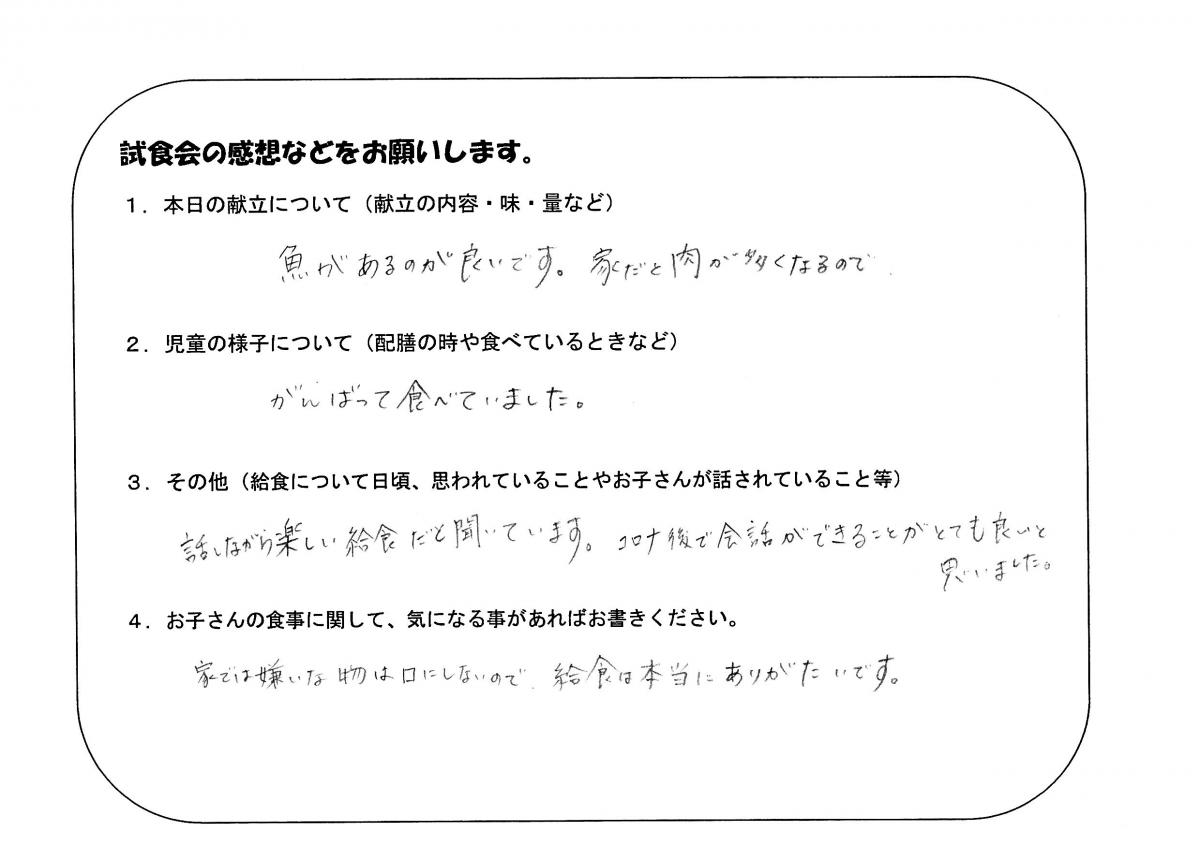 試食会の感想などをお願いします。
１．本日の献立について（献立の内容・味・量など）
魚があるのが良いです。家だと肉が多くなるので.
２．児童の様子について（配膳の時や食べているときなど）
がんばって食べていました。
３．その他（給食について日頃、思われていることやお子さんが話されていること等）
話しながら楽しい給食だと聞いています。コロナ後で会話ができることがとても良いと
思いました。
４．お子さんの食事に関して、気になる事があればお書きください。
家では嫌いな物は口にしないので、給食は本当にありがたいです。